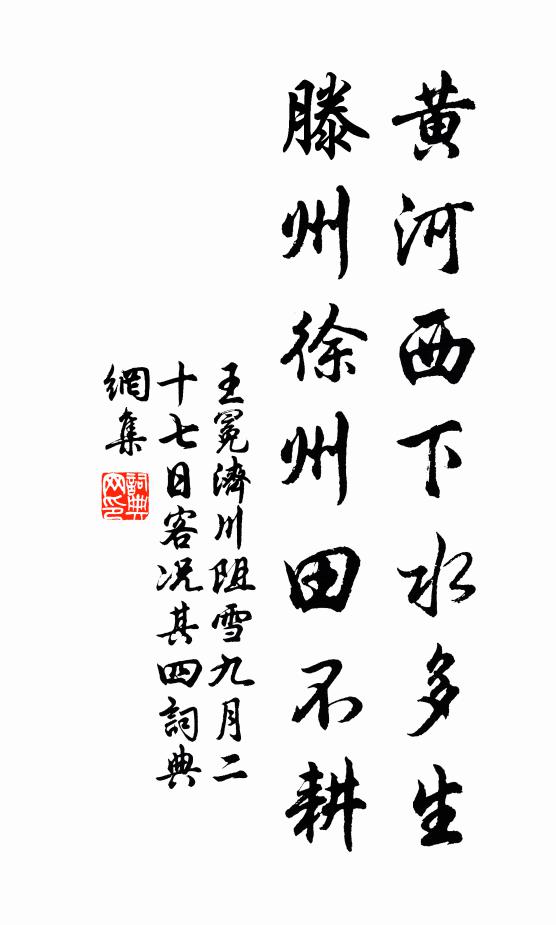 黄河西下水多生
滕州徐州田不耕
王冕濟川阻雪九月二
十七日客况其四詞典
網集
詞典
网印